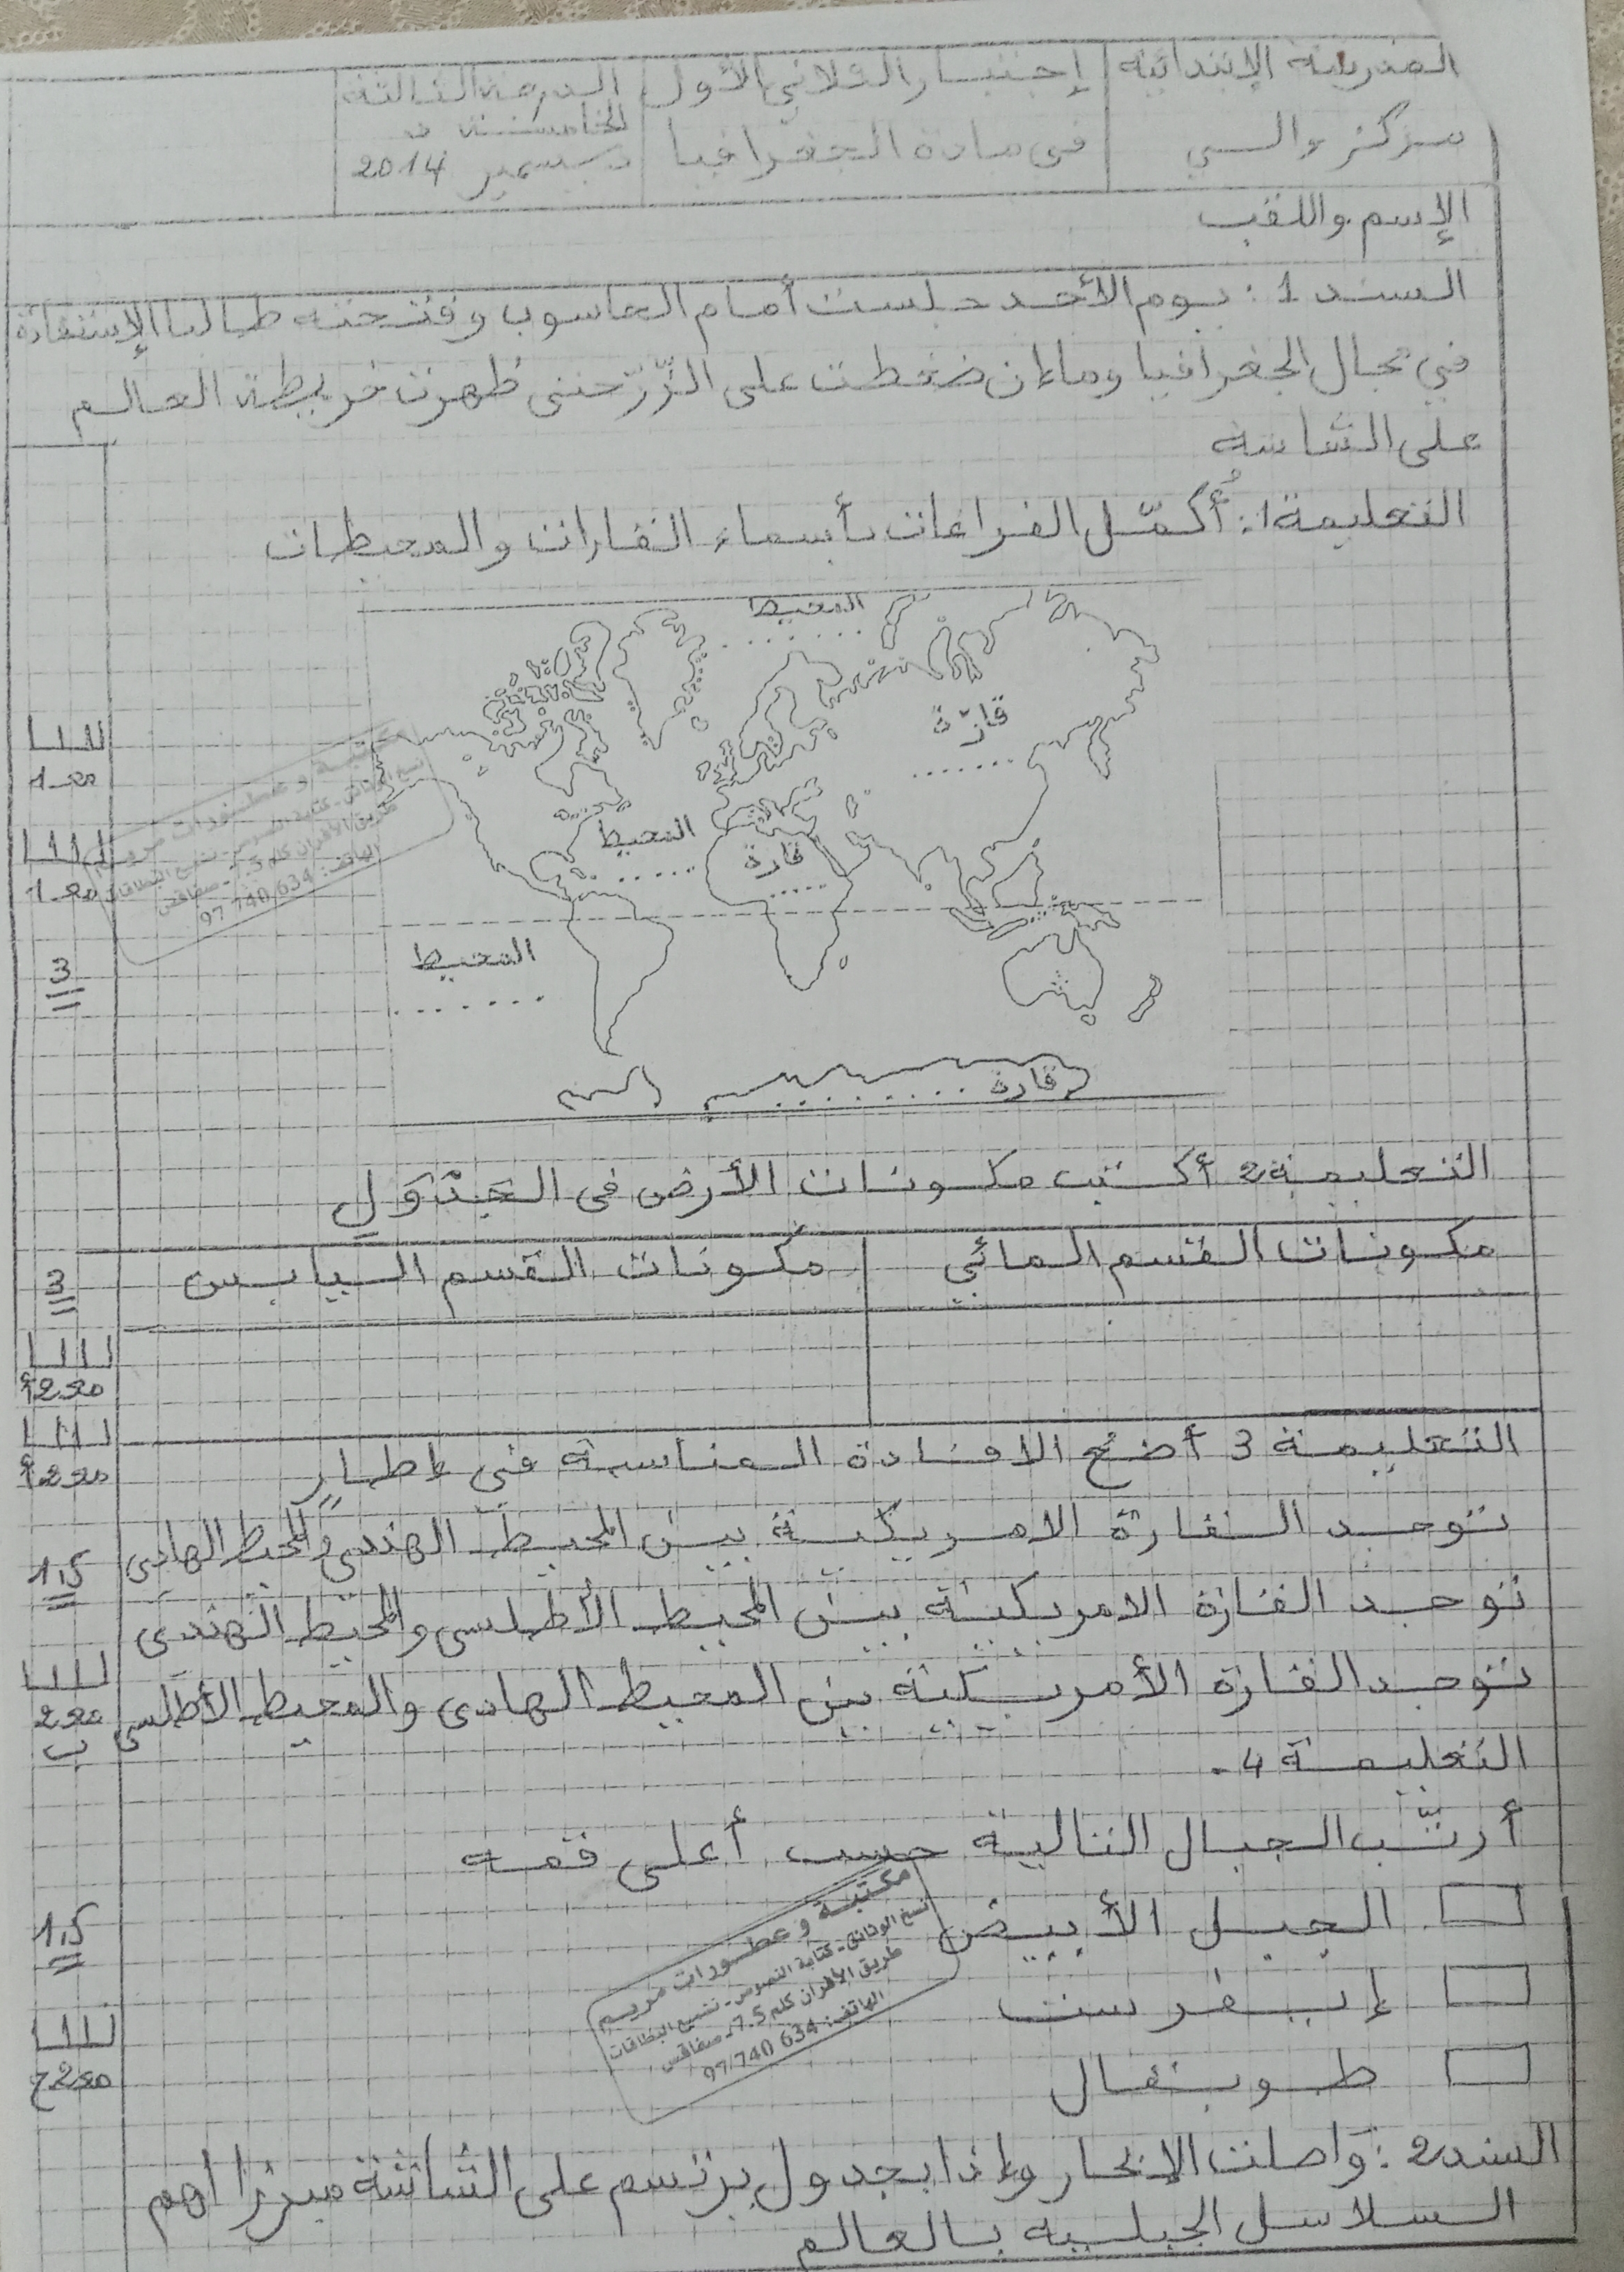 المدرسة الإبتدائية
مركز والي
إختبار الثلاثي الأول
في مادة الجغرافيا
الدرجة الثالثة
الخامسة
ديسمبر 2014
الإسم واللقب
السند 1: يوم الأحد جلست أمام الحاسوب وفتحته طالبا الإستفادة
في مجال الجغرافيا وما إن ضغطت على الزّرّ حتى ظهرت خريطة العالم
على الشاشة
التعليمة 1: أُكمّل الفراغات بأسماء القارات والمحيطات
المحيط
.......
قارّة
.......
المحيط
.......
قارة
.....
المحيط
.......
قارة ........
مع 1
مع 1
3
التعليمة 2 أكتب مكونات الأرض في الجدول
مكونات القسم المائي
مكونات القسم اليابس
3
مع 2 أ
مع 2 أ
التعليمة 3 أضع الافادة المناسبة في إطار
توجد القارة الامريكية بين المحيط الهندي والمحيط الهادي
توجد القارة الامريكية بين المحيط الأطلسي والمحيط الهندي
توجد القارة الأمريكية بين المحيط الهادي والمحيط الأطلسي
1,5
مع 2 ب
التعليمة 4.
أرتّب الجبال التالية حسب أعلى قمة
الجبل الأبيض
إيفرست
طوبقال
1,5
مع 2 ج
مكتبة وعطورات مريم
نسخ الوثائق - كتابة النصوص - نسخ البطاقات
طريق الأفران كلم 7.5 - صفاقس
الهاتف: 97 740 634
مكتبة وعطورات مريم
نسخ الوثائق - كتابة النصوص - نسخ البطاقات
طريق الأفران كلم 7.5 - صفاقس
الهاتف: 97 740 634
السند 2: واصلت الإبحار وإذا بجدول يرتسم على الشاشة مبرزا أهم
السلاسل الجبلية بالعالم